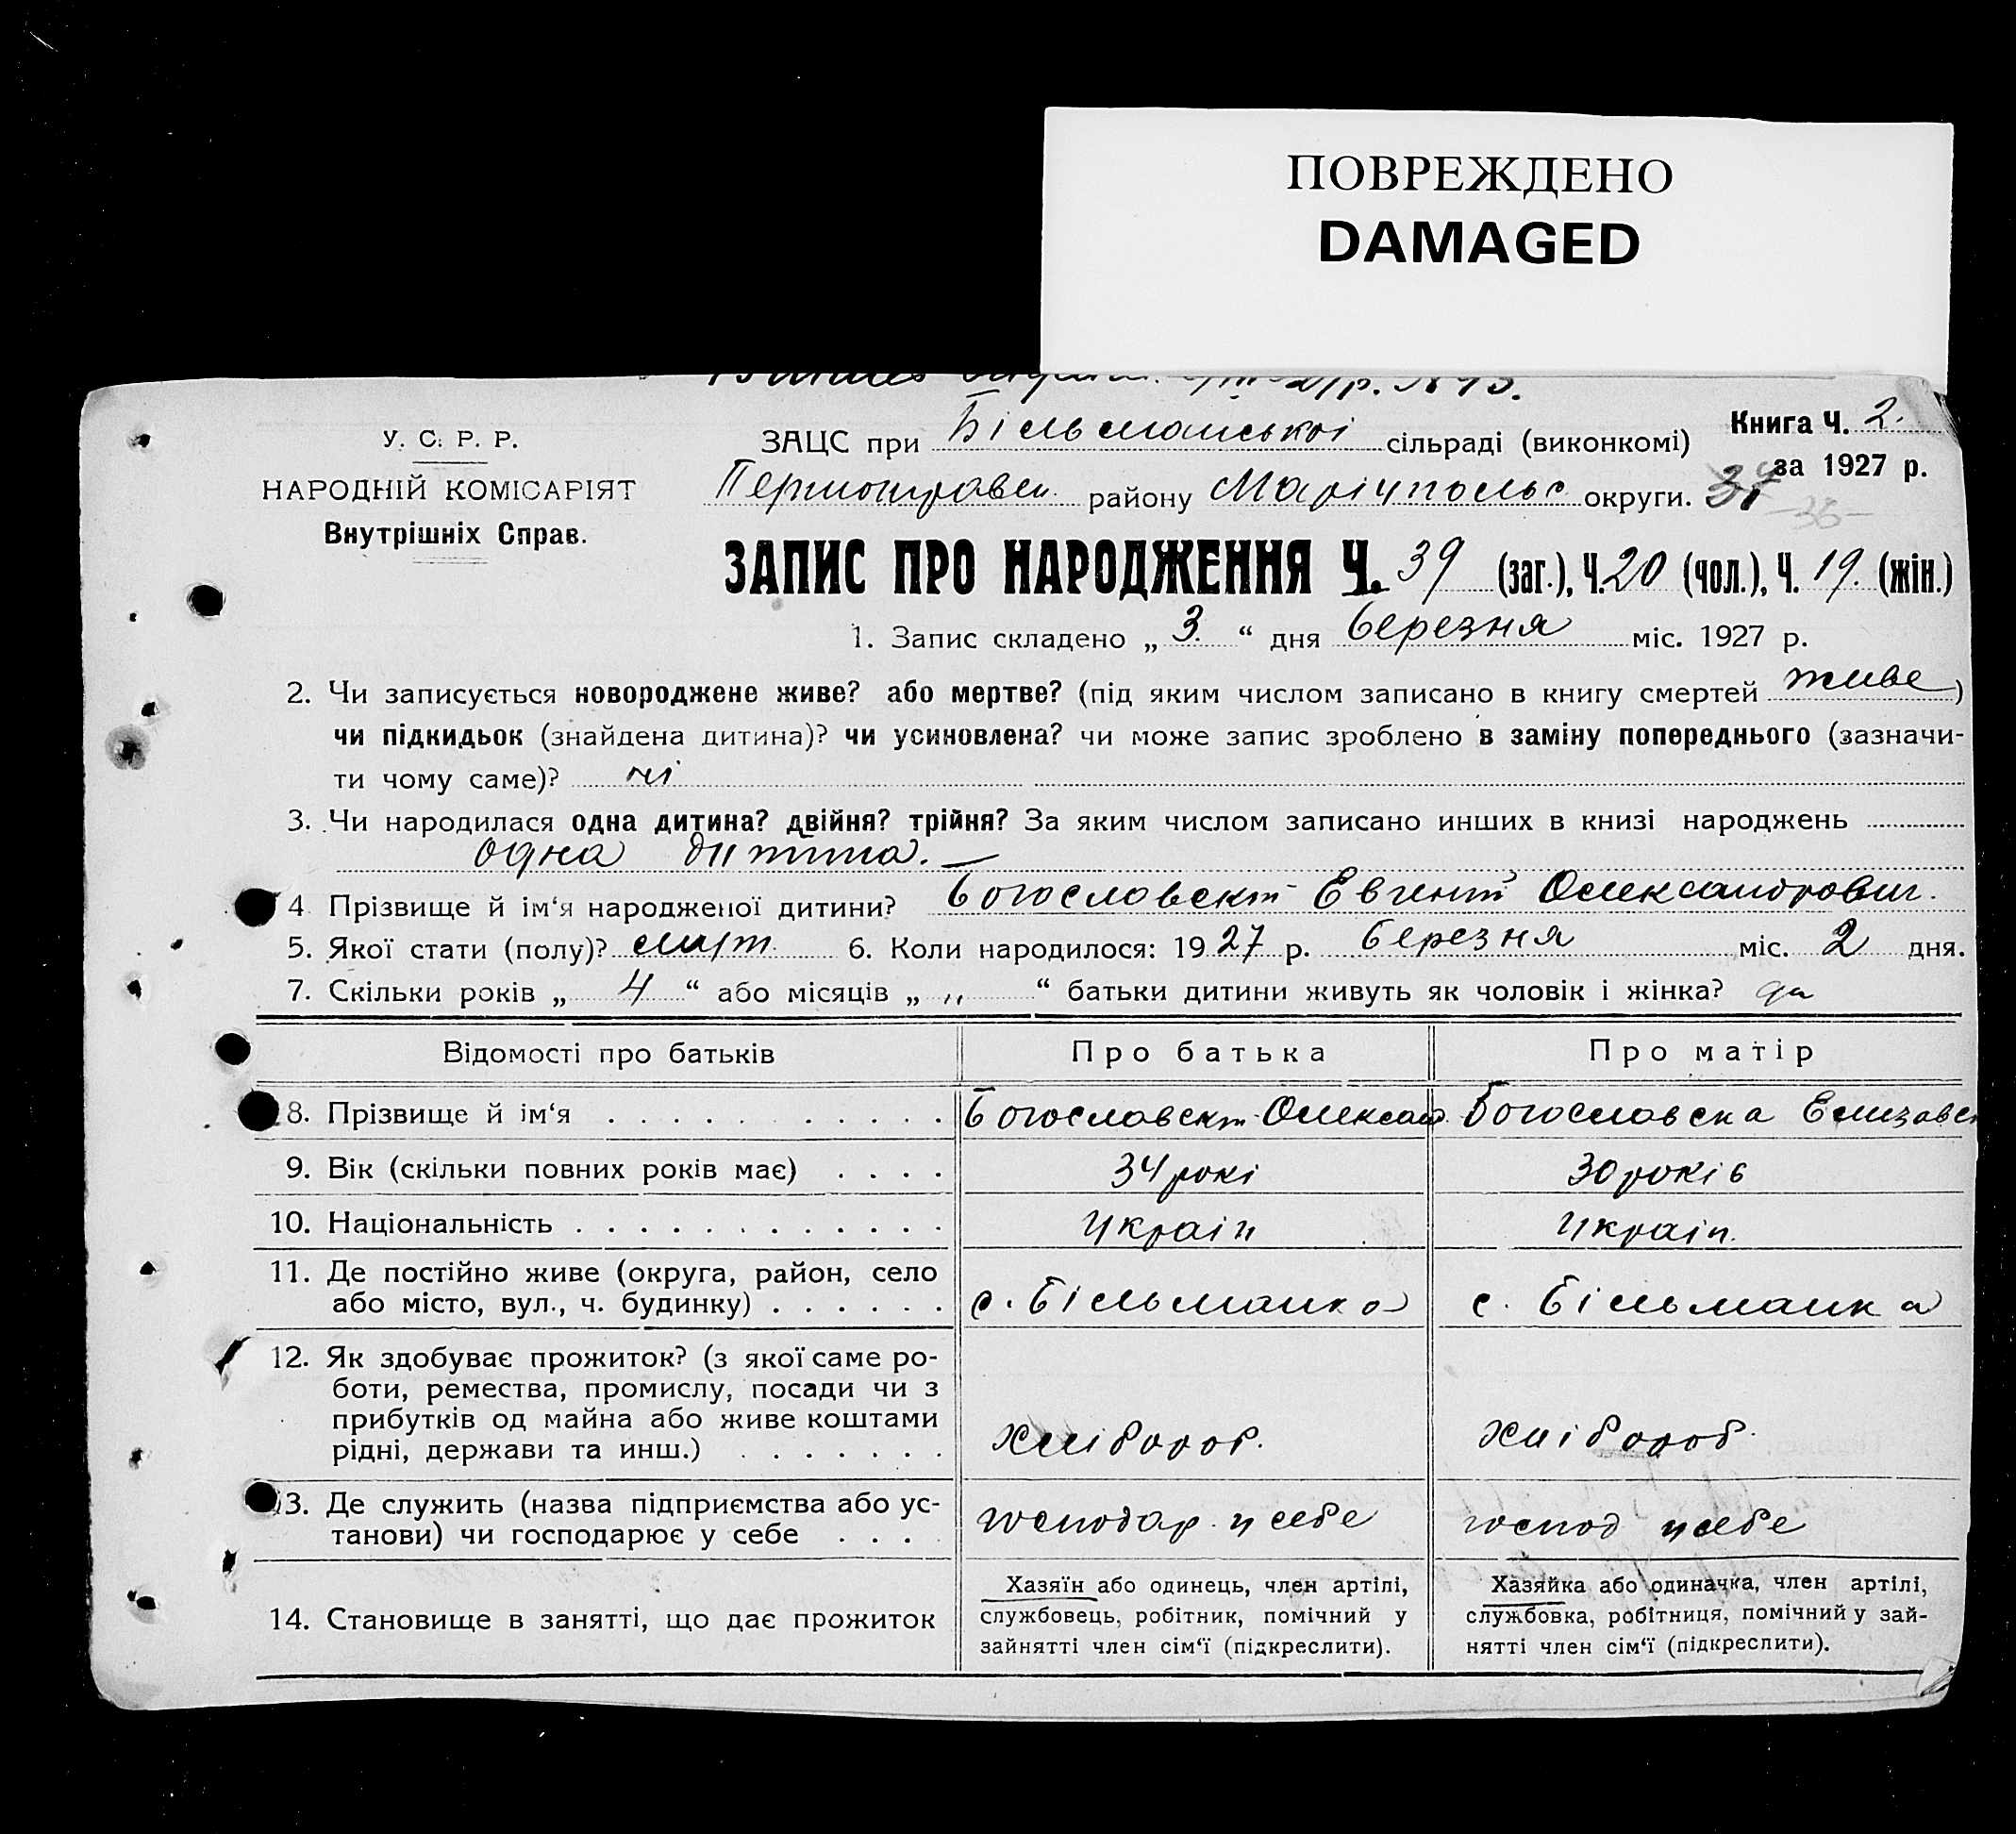 ПОВРЕЖДЕНО
DAMAGED
У. С. Р. Р.
НАРОДНІЙ КОМІСАРІЯТ
Внутрішніх Справ.
Книга Ч. 2.
за 1927 р.
ЗАЦС при Більманської сільраді (виконкомі)
району Маріупольс округи.
ЗАПИС ПРО НАРОДЖЕННЯ Ч. 39 (заг.), Ч. 20 (чол.), Ч. 19. (жін.)
1. Запис складено „ 3. “ дня березня міс. 1927 р.
2. Чи записується новороджене живе? або мертве? (під яким числом записано в книгу смертей живе )
чи підкидьок (знайдена дитина)? чи усиновлена? чи може запис зроблено в заміну попереднього (зазначи-
ти чому саме)? ні
3. Чи народилася одна дитина? двійня? трійня? За яким числом записано инших в книзі народжень
одна дитина. —
4 Прізвище й ім‘я народженої дитини? Богославский Евгений Олександрович.
5. Якої стати (полу)? 6. Коли народилося: 1927 р. березня міс. 2 дня.
7. Скільки років „ 4 “ або місяців „ „ “ батьки дитини живуть як чоловік і жінка? да
Відомості про батьків
Про батька
Про матір
8. Прізвище й ім‘я . . . . . . . . . . .
Богославский Олександ.
Богославска Елизавет
9. Вік (скільки повних років має) . . . .
34 рокі
30 років
10. Національність . . . . . . . . . . . .
Украін
Украін.
11. Де постійно живе (округа, район, село
або місто, вул., ч. будинку) . . . . . .
с. Більманка
с. Більманка
12. Як здобуває прожиток? (з якої саме ро-
боти, ремества, промислу, посади чи з
прибутків од майна або живе коштами
рідні, держави та инш.) . . . . . . .
хлібороб.
хлібороб.
13. Де служить (назва підприємства або ус-
танови) чи господарює у себе . . . .
господар. у себе
господ у себе
14. Становище в занятті, що дає прожиток
Хазяїн або одинець, член артілі,
службовець, робітник, помічний у
зайнятті член сім‘ї (підкреслити).
Хазяйка або одиначка, член артілі,
службовка, робітниця, помічний у зай-
нятті член сім‘ї (підкреслити).